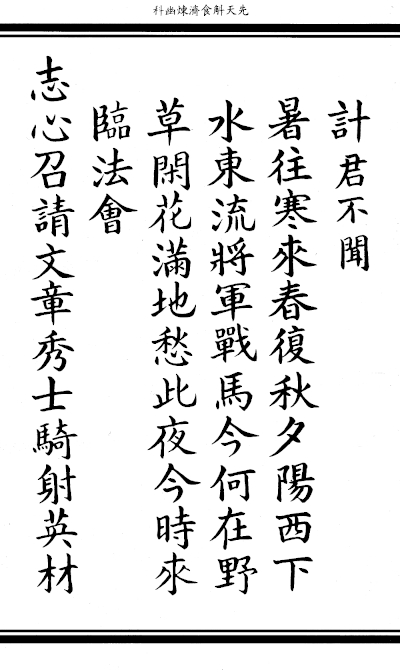 先天斛食濟煉幽科
計君不聞
暑往寒來春復秋夕陽西下
水東流將軍戰馬今何在野
草閑花滿地愁此夜今時來
臨法會
志心召請文章秀士騎射英材